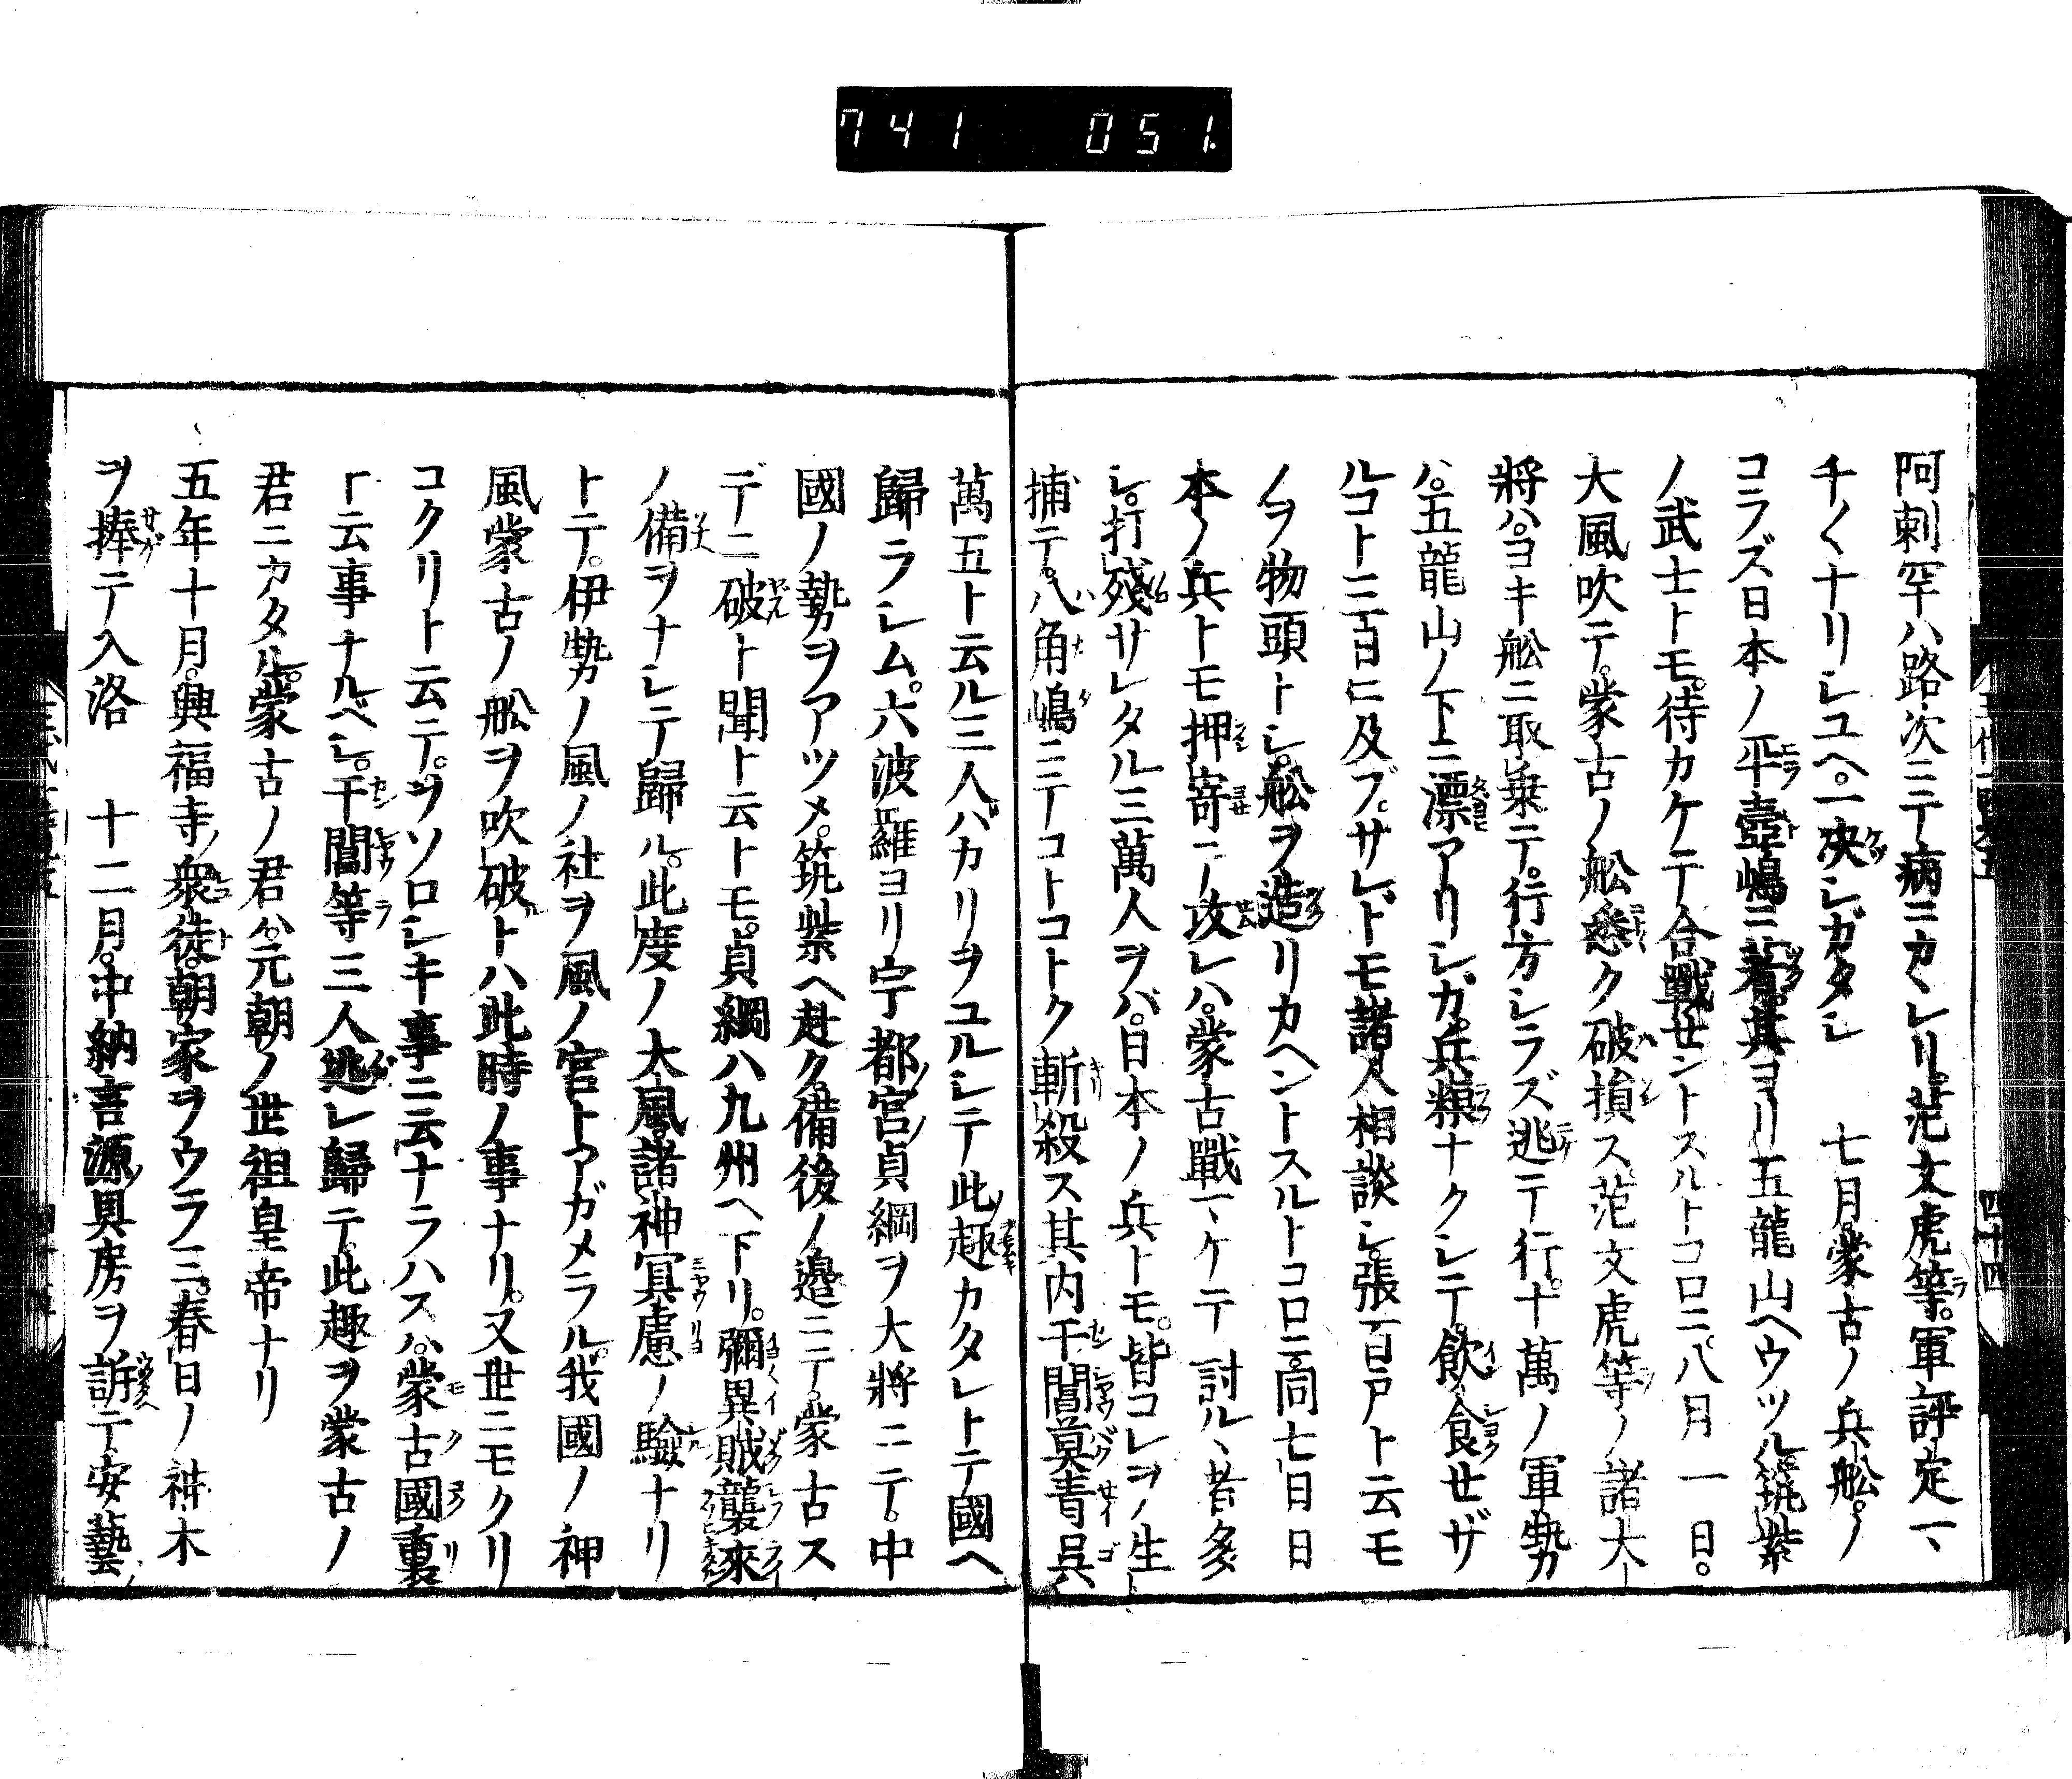 741 051.
阿刺罕ハ路次ニテ病ニカヽレリ。茫文虎等。軍評定一ヽ
チ〱ナリシユヘ。一决シガタシ 七月。蒙古ノ兵舩。ノ
コラズ日本ノ平壺嶋ニ著。其ヨリ五龍山ヘウツル。筑紫
ノ武士トモ。待カケテ合戰セントスルトコロニ。八月一日。
大風吹テ。蒙古ノ舩悉ク破損ス。茫文虎等ノ諸大
將ハ。ヨキ舩ニ取乗テ。行方シラズ逃テ行。十萬ノ軍勢
ハ。五龍山ノ下ニ漂アリシガ。兵粮ナクシテ。飲食セザ
ルコト三百ニ及ブ。サレドモ諸人相談シ。張百戸ト云モ
ノヲ物頭トシ。舩ヲ造リカヘントスルトコロニ。同七日日
本ノ兵トモ押寄テ攻シハ。蒙古戰マケテ討ルヽ者多
シ。打殘サレタル三萬人ヲバ。日本ノ兵トモ。皆コレヲ生
捕テ。八角嶋ニテコトコトク斬殺ス其内干閶莫青呉
萬五ト云ル三人バカリヲユルシテ此趣カタレトテ國ヘ
歸ラシム。六波羅ヨリ宇都宮貞綱ヲ大將ニテ。中
國ノ勢ヲアツメ。筑紫ヘ赴ク。備後ノ邉ニテ。蒙古ス
デニ破ト聞ト云トモ。貞綱ハ九州ヘ下リ。彌異賊襲來
ノ備ヲナシテ歸ル。此度ノ大風。諸神冥慮ノ驗ナリ
トテ。伊勢ノ風ノ社ヲ風ノ宮トアガメラル。我國ノ神
風蒙古ノ舩ヲ吹破トハ此時ノ事ナリ。又世ニモクリ
コクリト云テ。ヲソロシキ事ニ云ナラハスハ。蒙古國裏
ト云事ナルベシ。干閶等三人逃レ歸テ。此趣ヲ蒙古ノ
君ニカタル。蒙古ノ君ハ。元朝ノ世祖皇帝ナリ
五年十月。興福寺ノ衆徒。朝家ヲウラミ。春日ノ神木
ヲ捧テ入洛 十二月。中納言源具房ヲ訴テ安藝